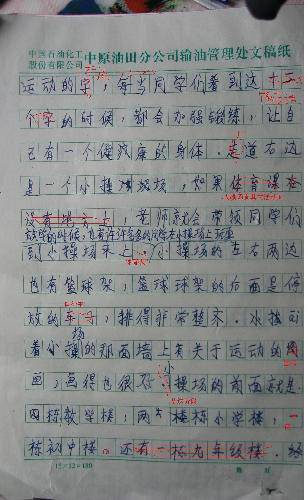 中国石油化工
股份有限公司 中原油田分公司输油管理处文稿纸
运动的字，每当同学们看到这十二
个字的时候，都会加强锻炼，让自
己有一个健康的身体。走道右边
是一个小操场，如果体育课在
老师就会带领同学们
放学的时候，也有许许多多的同学在小操场上玩耍
到小操场来上。小操场的左右两边
也有篮球架，篮球球架的后面是停
放的车子，排得非常整齐。小操
场
着小操的那面墙上有关于运动的图
画，画得也很 小操场的前面就是
四栋教学楼，两栋小学楼，一
栋初中楼。还有一栋九年级楼。经
15×12=180